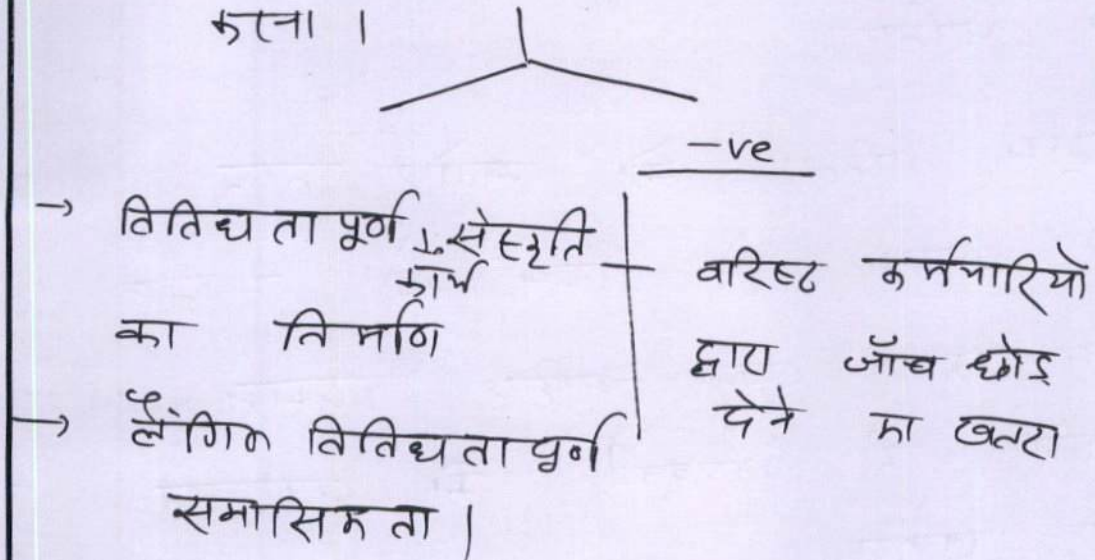 करना ।
-ve
→ विविधतापूर्ण कार्य संस्कृति
का निर्माण
→ लैंगिक विविधतापूर्ण
समासिकता ।
वरिष्ट कर्मचारियो
द्वारा जॉब छोड़
देने का खतरा